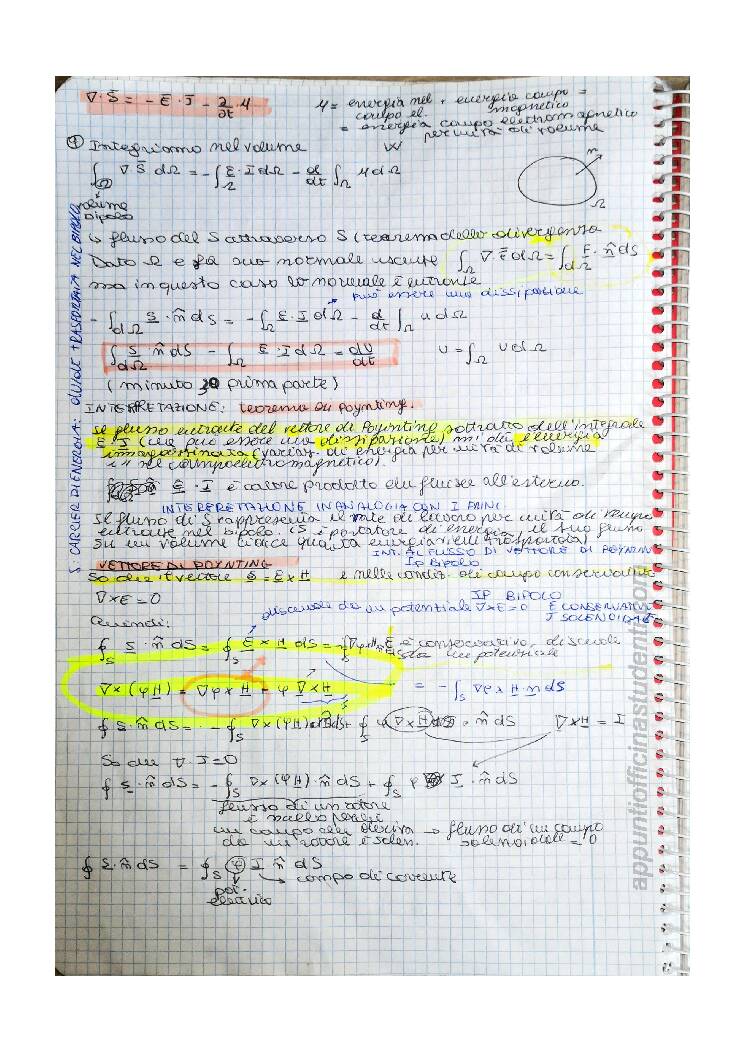 ∇·S̄ = -Ē·J̄ - ∂/∂t·u
u = energia nel + energia campo =
campo el. magnetico
= energia campo elettromagnetico
per unità di volume
① Integriamo nel volume
W
∫_Ω ∇·S̄ dΩ = -∫_Ω E·J dΩ - d/dt ∫_Ω u dΩ
n
Ω
volume
bipolo
↳ flusso del S attraverso S (teorema della divergenza
Dato Ω e la sua normale uscente
∫_Ω ∇·E̅ dΩ = ∫_dΩ F·n̂ dS
ma in questo caso la normale è entrante
può essere una dissipazione
-∫_dΩ S·n̂ dS = -∫_Ω E·J dΩ - d/dt ∫_Ω u dΩ
∫_dΩ S·n̂ dS - ∫_Ω E·J dΩ = dU/dt
U = ∫_Ω U dΩ
(minuto 30 prima parte)
INTERPRETAZIONE: teorema di Poynting.
Il flusso entrante del vettore di Poynting sottratto dell'integrale
E·J (che può essere una dissipazione) mi dà l'energia
immagazzinata (variaz. di energia per unità di volume
nel campo elettromagnetico).
E·J è calore prodotto che fluisce all'esterno.
INTERPRETAZIONE IN ANALOGIA CON I PRINC
Il flusso di S rappresenta il rate di lavoro per unità di tempo
entrante nel bipolo. (S è portatore di energia, il suo flusso
su un volume ci dice quanta energia viene trasportata)
INT. AL FLUSSO DI VETTORE DI POYNTIN
VETTORE DI POYNTING
IP BIPOLO
So che il vettore S = E × H e nelle condiz. di campo conservativo
∇×E = 0
IP BIPOLO
discende da un potenziale ∇×E=0 E CONSERVATIVO
J SOLENOIDALE
Quindi:
∮_S S·n̂ dS = ∮_S E × H dS = E è conservativo, discende
da un potenziale
∇×(φH) = ∇φ×H + φ∇×H
= -∫_S ∇φ×H·n dS
∮ S·n̂ dS = -∫_S ∇×(φH)·n̂ dS + ∮_S φ ∇×H·n̂ dS
∇×H = J
So che ∇·J=0
∮ S·n̂ dS = -∫_S ∇×(φH)·n̂ dS + ∮_S φ J·n̂ dS
flusso di un rotore
è nullo perché
un campo che deriva → flusso di un campo
da un rotore è solen. solenoidale = 0
∮ S·n̂ dS = ∮_S φ J n̂ dS
↳ campo di corrente
pot.
elettrico
S: CARRIER DI ENERGIA:
TRASPORTATA NEL BIPOLO
appuntiofficinastudenti.com